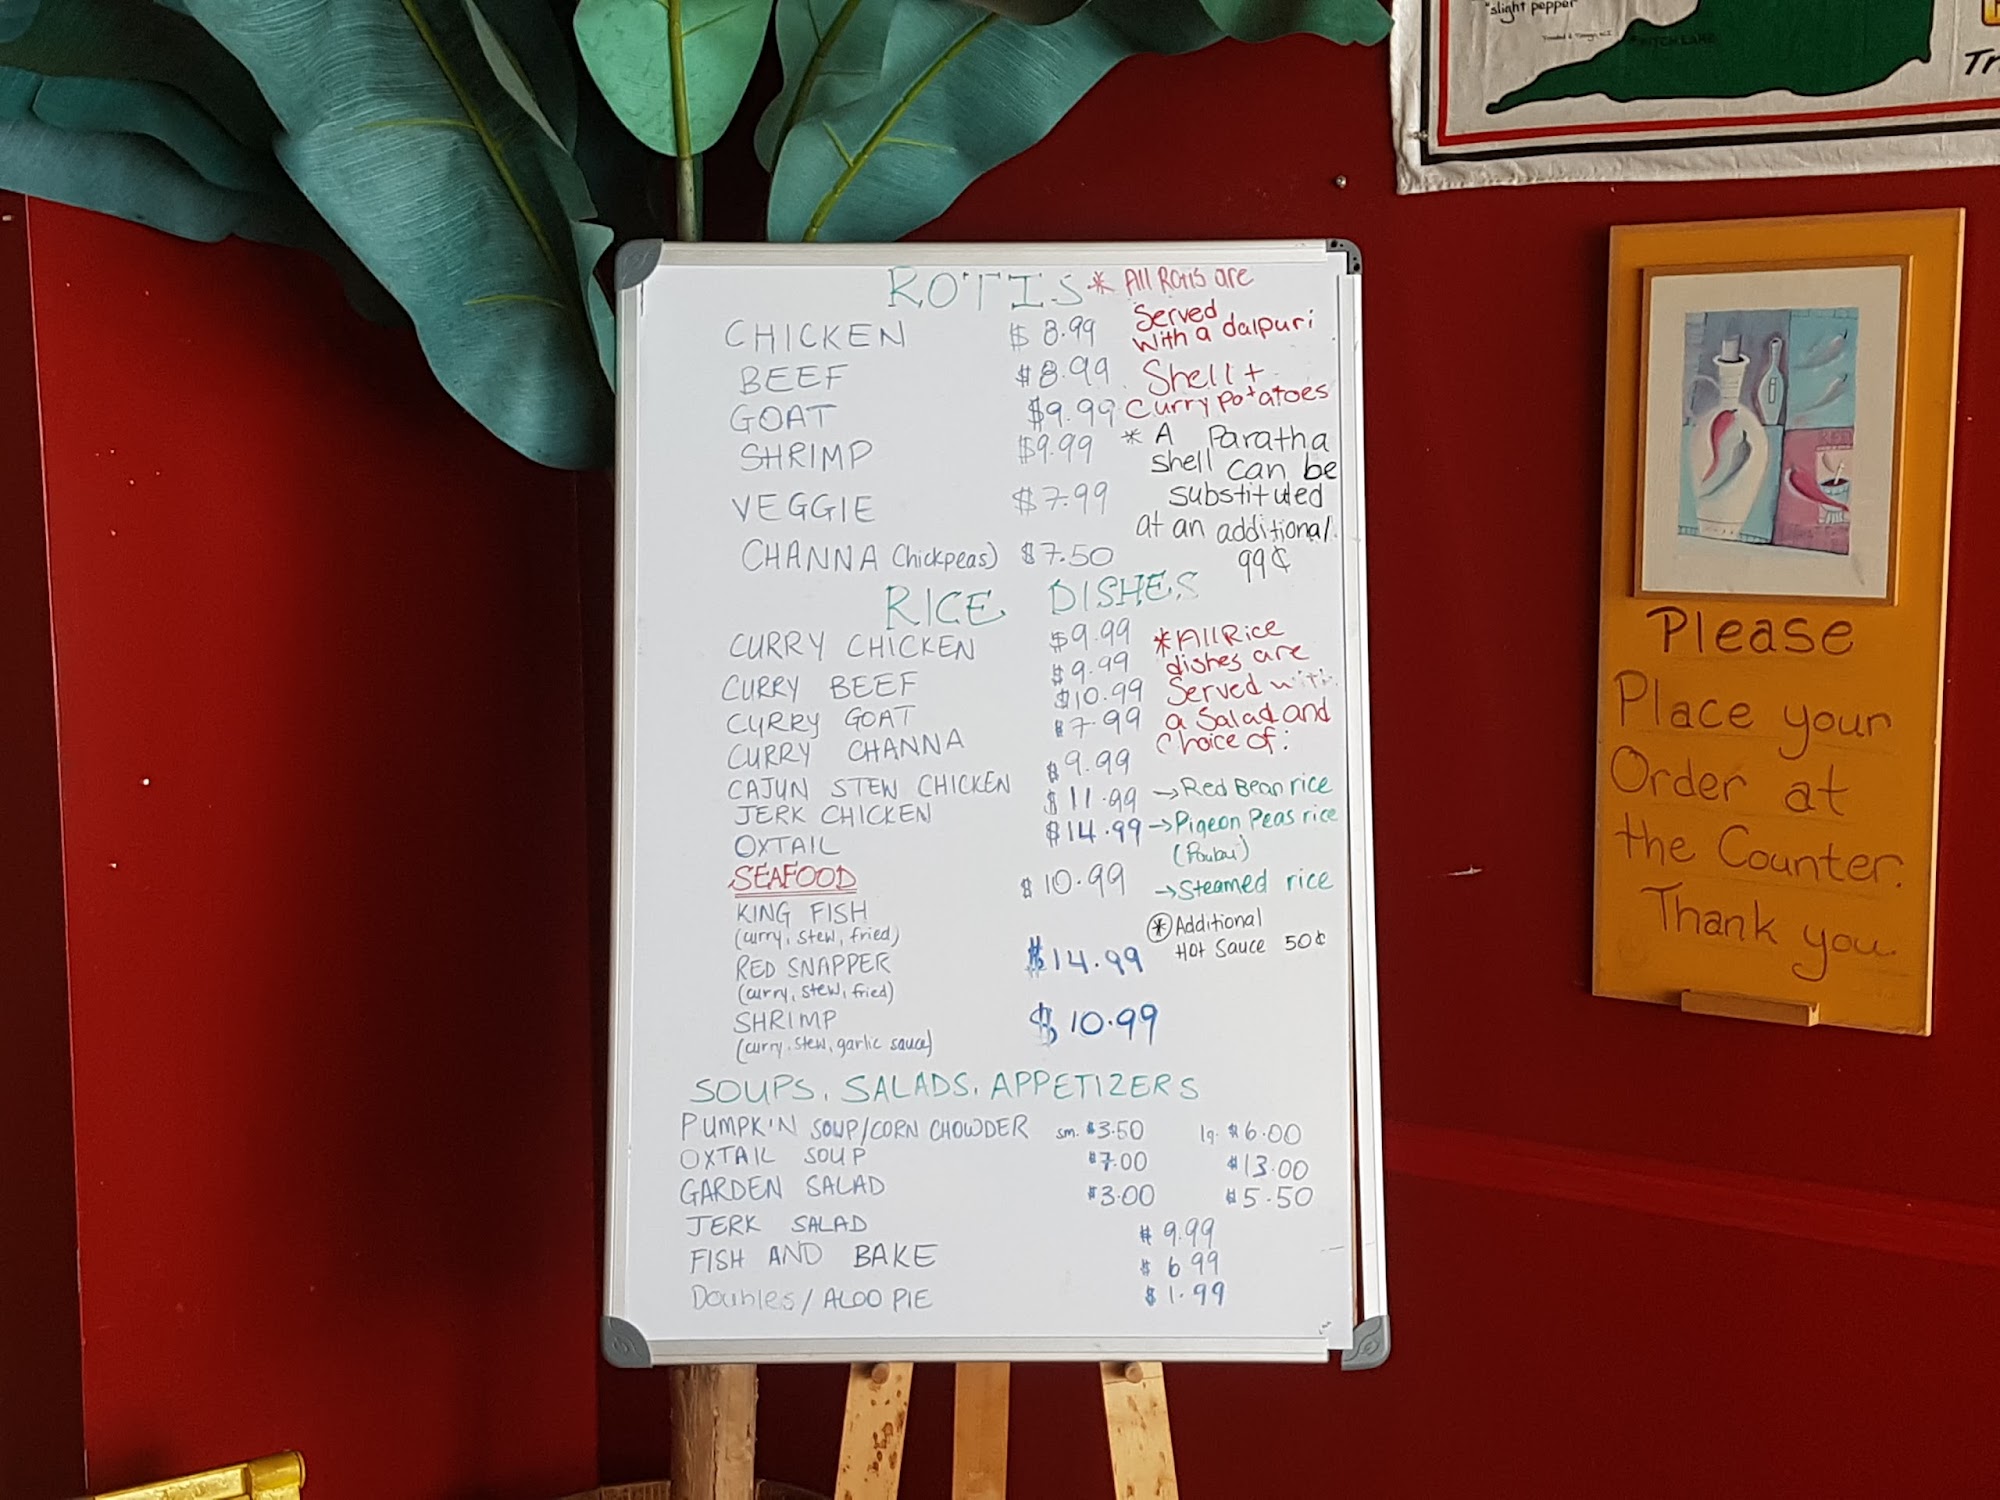 "slight pepper"
Trinidad & Tobago, W.I.
PITCH LAKE
ROTIS * All Rotis are
Served
CHICKEN $8.99 with a dalpuri
BEEF $8.99 Shell +
GOAT $9.99 Curry potatoes
SHRIMP $9.99 * A Paratha
shell can be
VEGGIE $7.99 substituted
at an additional
CHANNA Chickpeas) $7.50 99¢
RICE DISHES
CURRY CHICKEN $9.99 *All Rice
dishes are
CURRY BEEF $9.99 Served with
CURRY GOAT $10.99 a Salad and
CURRY CHANNA $7.99 Choice of:
CAJUN STEW CHICKEN $9.99 →Red Bean rice
JERK CHICKEN $11.99 →Pigeon Peas rice
OXTAIL $14.99
SEAFOOD →Steamed rice
KING FISH $10.99 * Additional
(curry, stew, fried) Hot Sauce 50¢
RED SNAPPER $14.99
(curry, stew, fried)
SHRIMP $10.99
(curry, stew, garlic sauce)
SOUPS, SALADS, APPETIZERS
PUMPKIN SOUP/CORN CHOWDER sm. $3.50 lg. $6.00
OXTAIL SOUP $7.00 $13.00
GARDEN SALAD $3.00 $5.50
JERK SALAD $9.99
FISH AND BAKE $6.99
Doubles/ALOO PIE $1.99
Please
Place your
Order at
the Counter.
Thank you